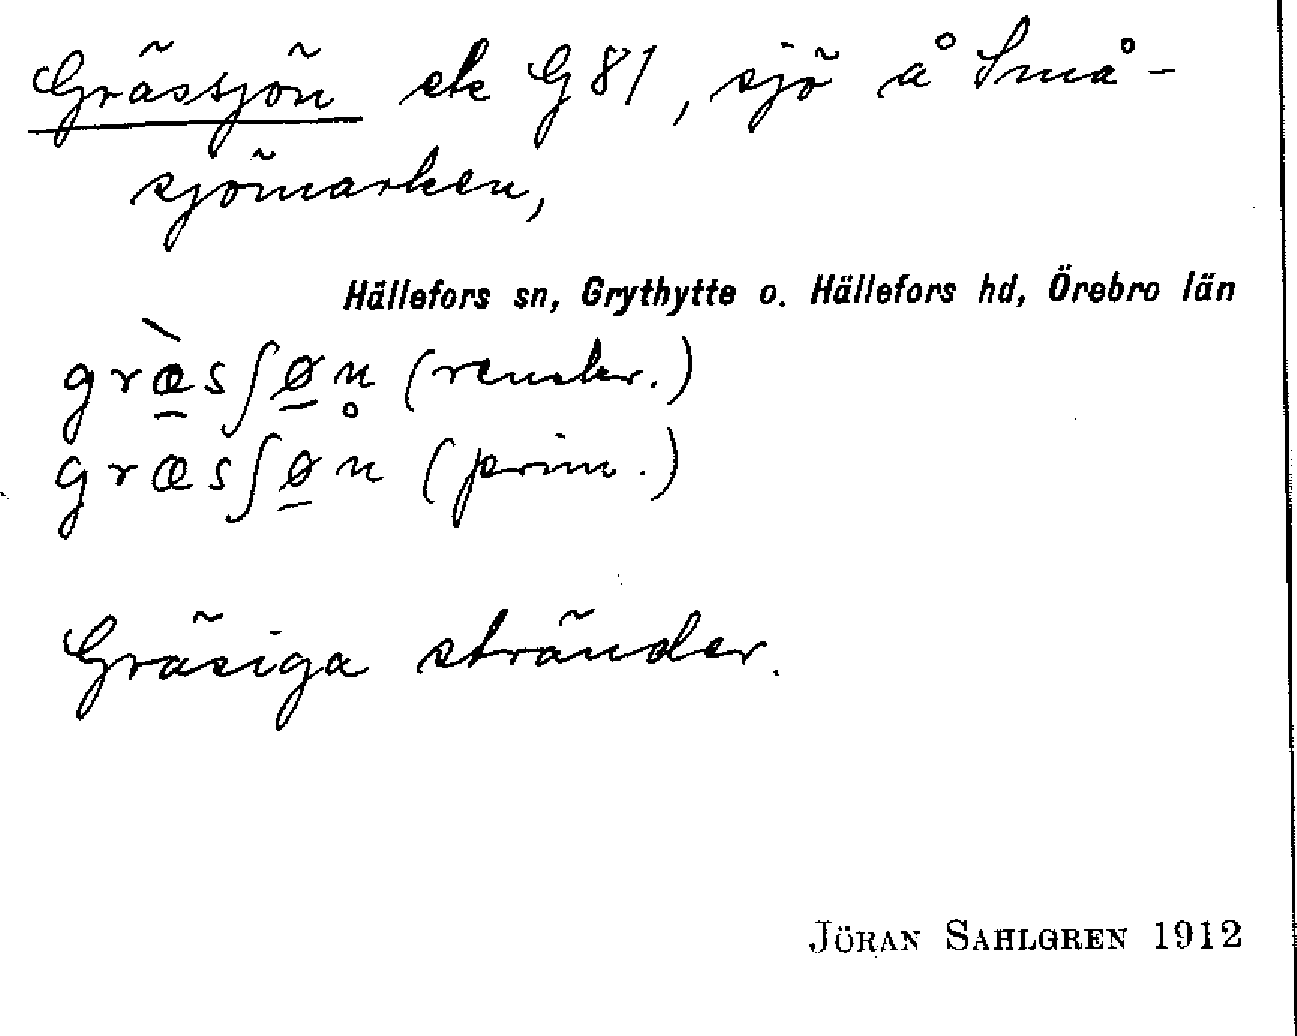 Grässjön ek G 81, sjö å Små-
sjömarken,
Hällefors sn, Grythytte o. Hällefors hd, Örebro län
græ̱̀sʃø̱n̥ (renskr.)
græsʃø̱n (prim.)
Gräsiga stränder.
JÖRAN SAHLGREN 1912